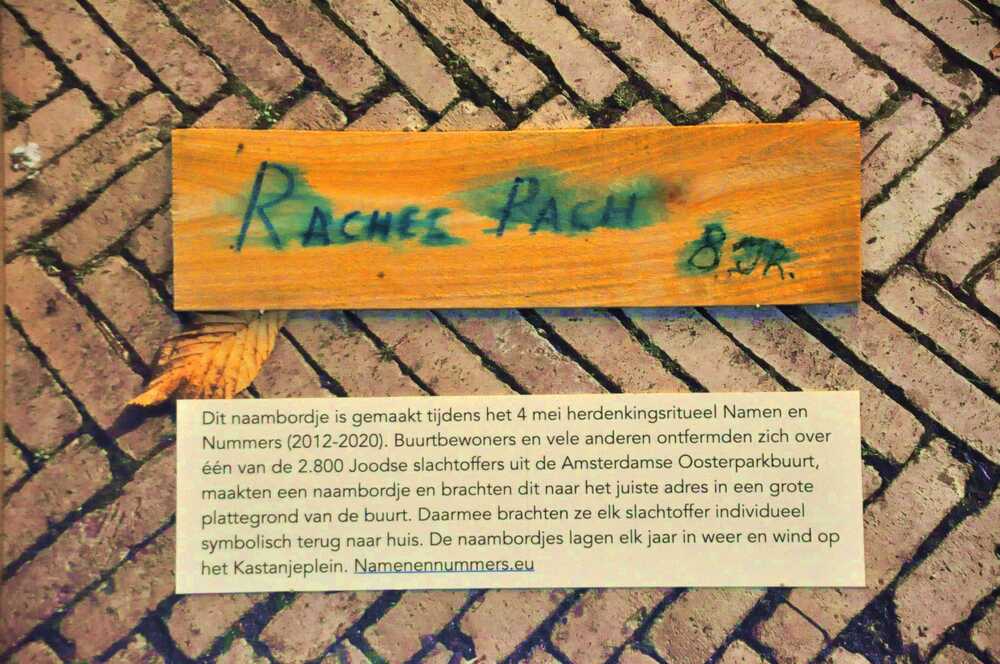 RACHEL PACH
8 JR.
Dit naambordje is gemaakt tijdens het 4 mei herdenkingsritueel Namen en
Nummers (2012-2020). Buurtbewoners en vele anderen ontfermden zich over
één van de 2.800 Joodse slachtoffers uit de Amsterdamse Oosterparkbuurt,
maakten een naambordje en brachten dit naar het juiste adres in een grote
plattegrond van de buurt. Daarmee brachten ze elk slachtoffer individueel
symbolisch terug naar huis. De naambordjes lagen elk jaar in weer en wind op
het Kastanjeplein. Namenennummers.eu